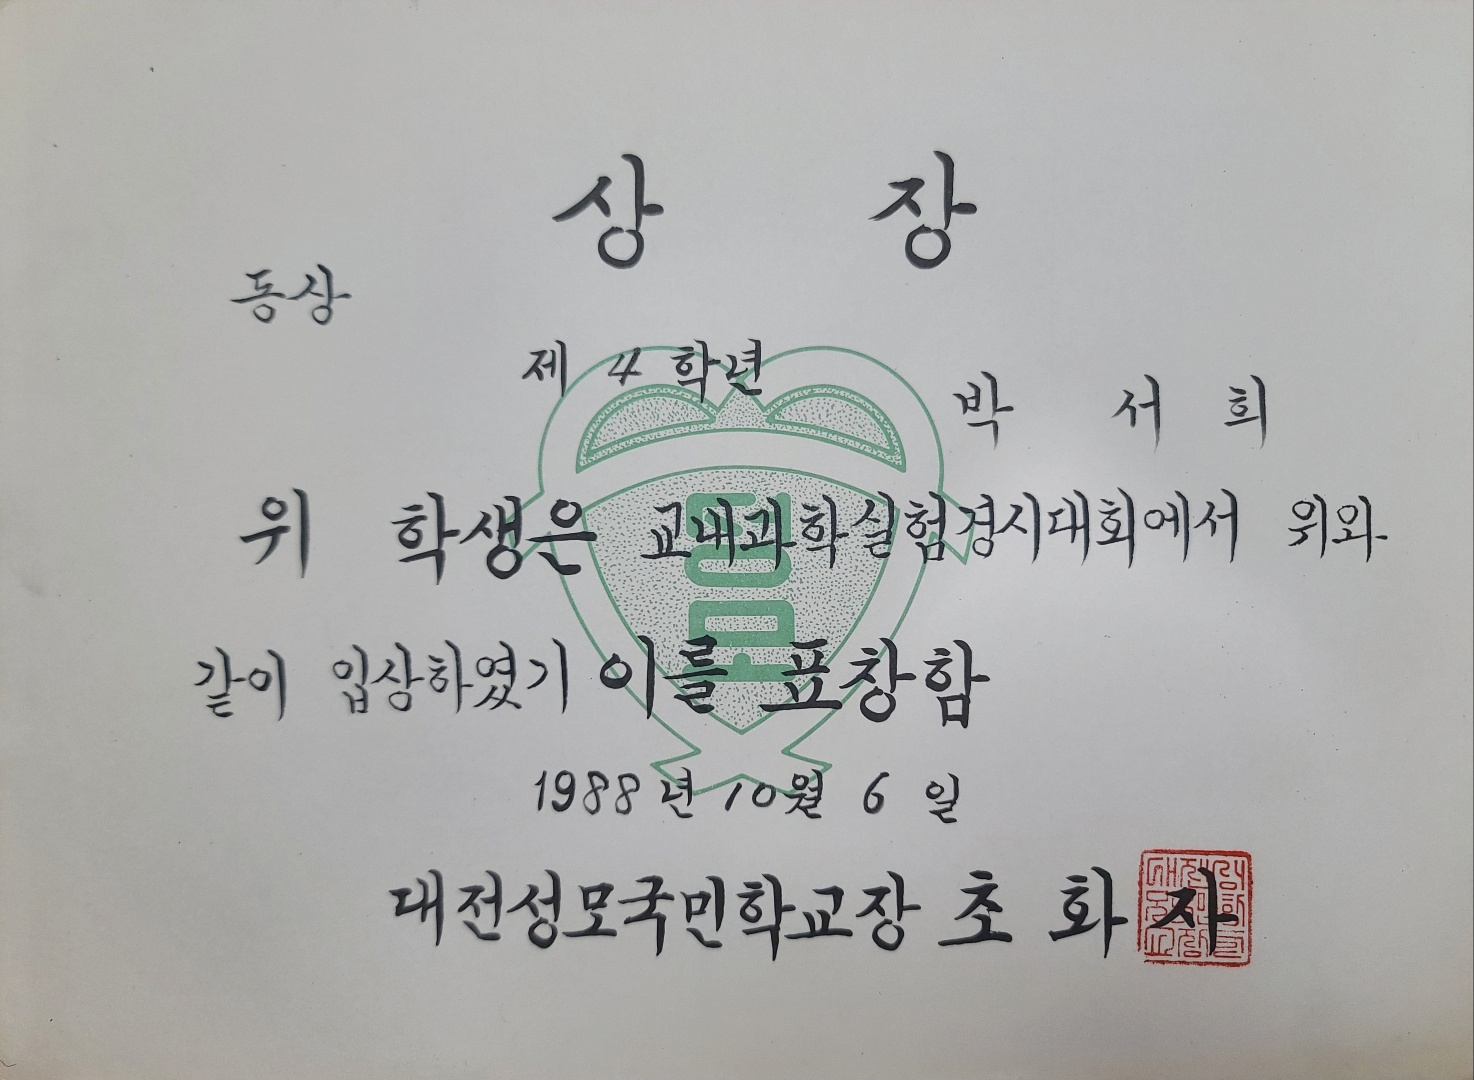 상 장
동상
제 4 학년
박 서 희
위 학생은 교내과학실험경시대회에서 위와
같이 입상하였기 이를 표창함
1988년 10월 6 일
대전성모국민학교장 초 화 자